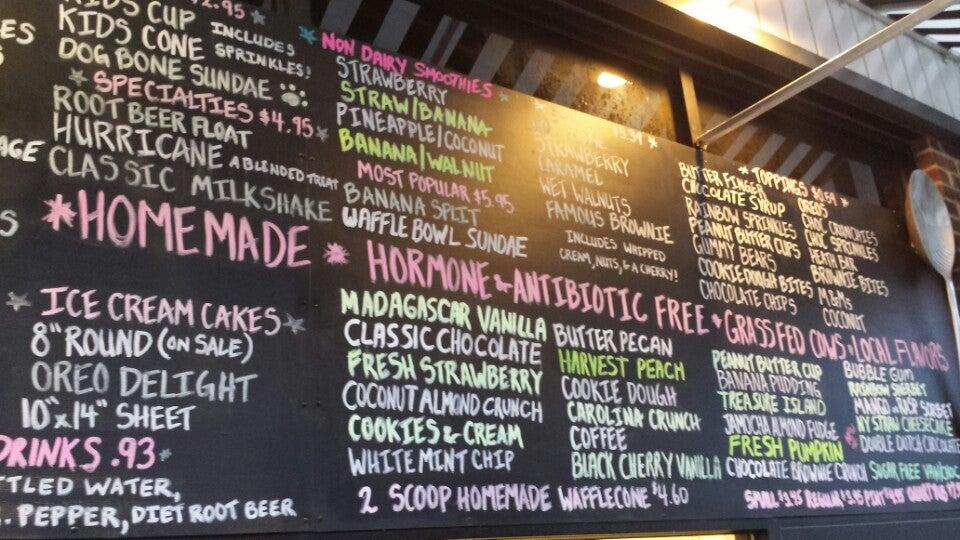 $2.95
KIDS CUP
KIDS CONE INCLUDES
SPRINKLES!
DOG BONE SUNDAE
SPECIALTIES $4.95
ROOT BEER FLOAT
HURRICANE A BLENDED TREAT
CLASSIC MILKSHAKE
NON DAIRY SMOOTHIES
STRAWBERRY
STRAW/BANANA
PINEAPPLE/COCONUT
BANANA/WALNUT
MOST POPULAR $5.95
BANANA SPLIT
WAFFLE BOWL SUNDAE
STRAWBERRY
CARAMEL
WET WALNUTS
FAMOUS BROWNIE
INCLUDES WHIPPED
CREAM, NUTS, & A CHERRY!
TOPPINGS $0.54
BUTTER FINGER
CHOCOLATE SYRUP
RAINBOW SPRINKLES
PEANUT BUTTER CUPS
GUMMY BEARS
COOKIE DOUGH BITES
CHOCOLATE CHIPS
OREOS
CHOC CRUNCHIES
CHOC SPRINKLES
HEATH BAR
BROWNIE BITES
M&Ms
COCONUT
HOMEMADE HORMONE & ANTIBIOTIC FREE GRASSFED COWS LOCAL FLAVORS
ICE CREAM CAKES
8" ROUND (ON SALE)
OREO DELIGHT
10"x14" SHEET
DRINKS .93
TTLED WATER,
. PEPPER, DIET ROOT BEER
MADAGASCAR VANILLA
CLASSIC CHOCOLATE
FRESH STRAWBERRY
COCONUT ALMOND CRUNCH
COOKIES & CREAM
WHITE MINT CHIP
BUTTER PECAN
HARVEST PEACH
COOKIE DOUGH
CAROLINA CRUNCH
COFFEE
BLACK CHERRY VANILLA
PEANUT BUTTER CUP
BANANA PUDDING
TREASURE ISLAND
JAMOCHA ALMOND FUDGE
FRESH PUMPKIN
CHOCOLATE BROWNIE CRUNCH
BUBBLE GUM
RAINBOW SHERBET
MANGO SORBET
NY STRAW CHEESECAKE
DOUBLE DUTCH CHOCOLATE
SUGAR FREE VAN/CHOC
2 SCOOP HOMEMADE WAFFLECONE $4.60
SMALL $3.45 REGULAR